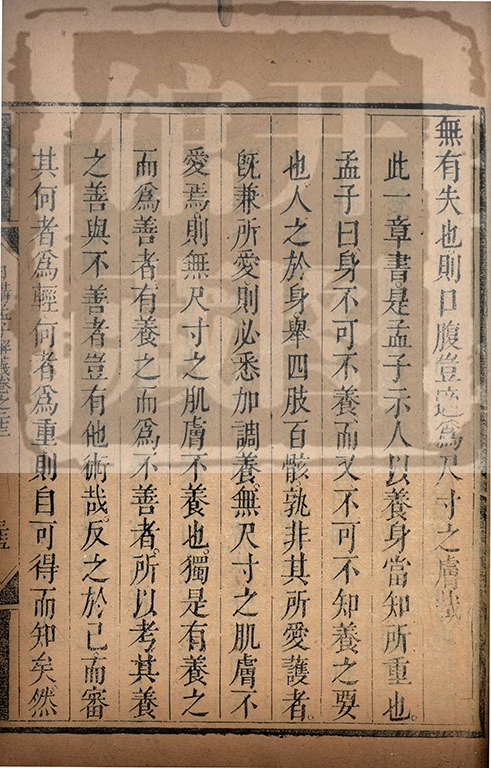 無有失也則口腹豈適爲尺寸之膚哉
此一章書是孟子示人以養身當知所重也。
孟子曰身不可不養而又不可不知養之要
也。人之於身舉四肢百骸孰非其所愛護者。
旣兼所愛。則必悉加調養。無尺寸之肌膚不
愛焉。則無尺寸之肌膚不養也。獨是有養之
而爲善者有養之而爲不善者。所以考其養
之善與不善者豈有他術哉。反之於己。而審
其何者爲輕何者爲重則自可得而知矣。然